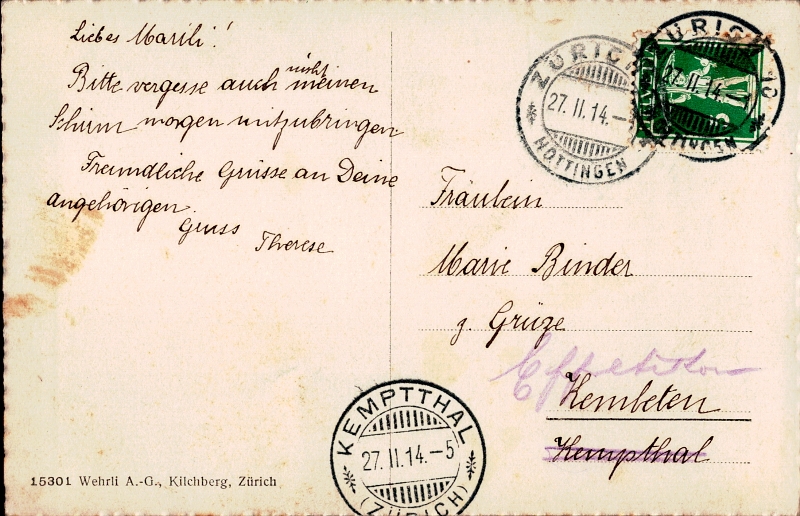 Liebes Marili!
Bitte vergesse auch nicht meinen
Schirm morgen mitzubringen
Freundliche Grüsse an Deine
angehörigen
Gruss
Therese
15301 Wehrli A.-G., Kilchberg, Zürich
ZÜRICH
27.II.14.–
HOTTINGEN
ZÜRICH 10
27.II.14.–
HOTTINGEN
HELVETIA
Fräulein
Marie Binder
z. Grüze
Effretikon
Kembeten
Kempthal
KEMPTTHAL
27.II.14.–5
(ZÜRICH)